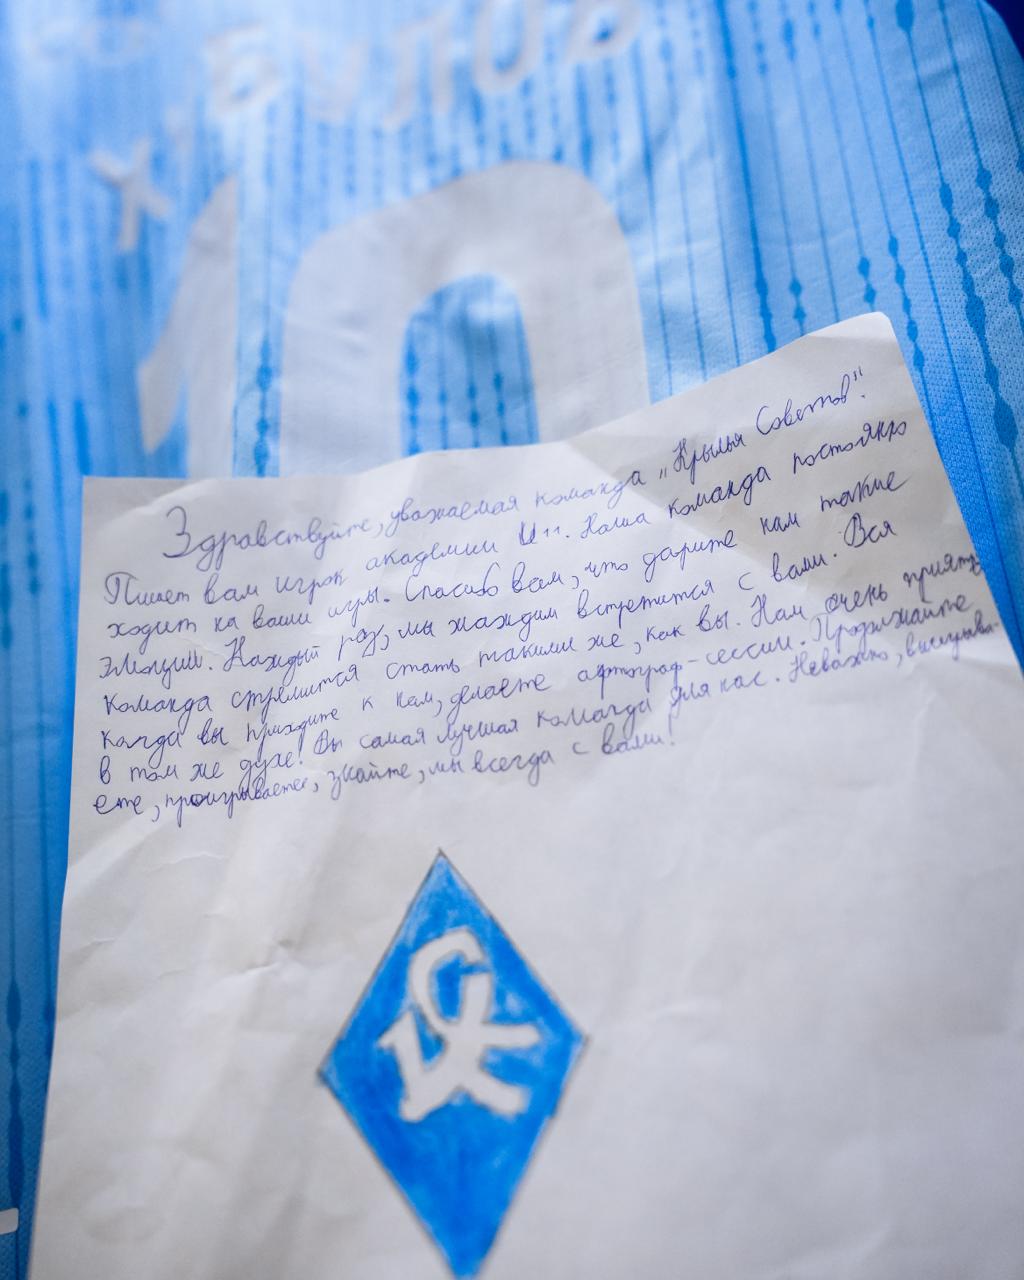 БУЛОВ
10
Здравствуйте, уважаемая команда „Крылья Советов".
Пишет вам игрок академии U11. Наша команда постоянно
ходит на ваши игры. Спасибо вам, что дарите нам такие
эмоции. Каждый раз, мы жаждим встретится с вами. Вся
команда стремится стать такими же, как вы. Нам очень приятно
когда вы приходите к нам, делаете афтограф-сессии. Продолжайте
в том же духе! Вы самая лучшая команда для нас. Неважно, выигрыва-
ете, проигрываете, знайте, мы всегда с вами!
КС